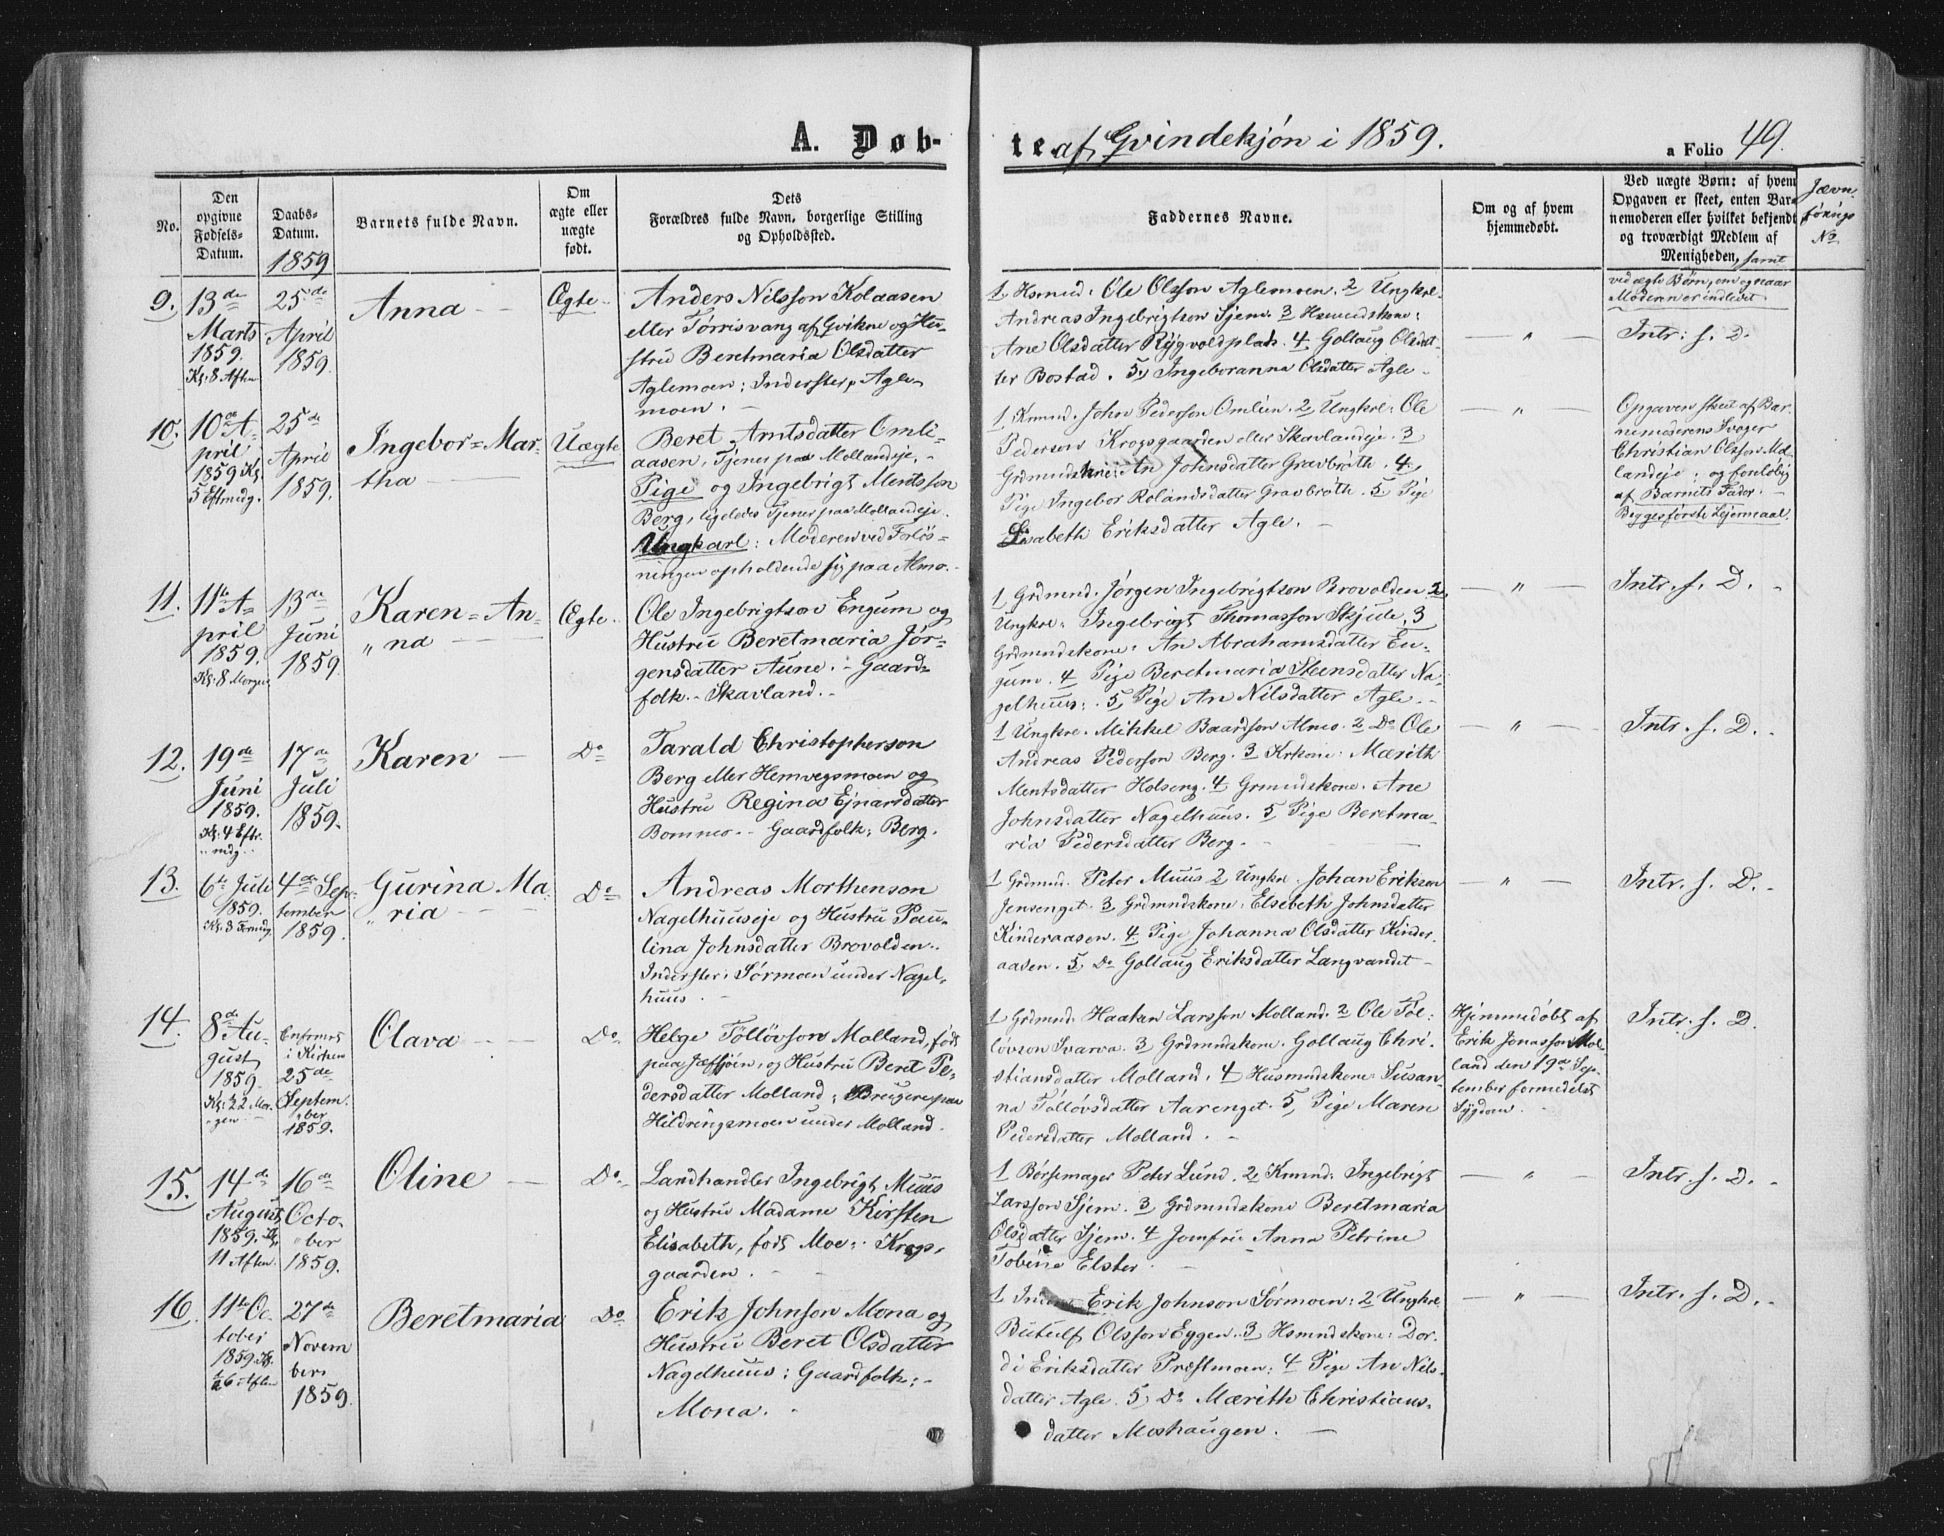 A. Døb-
te af Qvindekjön i 1859.
a Folio 49.
No.
Den opgivne Fødsels-Datum.
Daabs-Datum.
1859
Barnets fulde Navn.
Om ægte eller uægte født.
Dets
Forældres fulde Navn, borgerlige Stilling
og Opholdssted.
Faddernes Navne.
Om og af hvem
hjemmedøbt.
Ved uægte Børn: af hvem
Opgaven er skeet, enten Bar-
nemoderen eller hvilket bekjendt
og troværdigt Medlem af
Menigheden, samt
ved ægte Børn, om og naar
Moderen er indledet
Jævn-
förings
No
9.
13de
Marts
1859.
Kl: 8 Aften
25de
April
1859.
Anna
Ægte
Anders Nilsson Kolaasen
eller Törrisvang af Qvikne og Hu-
stru Beretmaria Olsdatter
Aglemoen; Inderster, Agle-
moen.
1 Hsmnd: Ole Olsson Aglemoen. 2 Ungkrl.
Andreas Ingebrigtson Sjem. 3 Hsmndskone:
Ane Olsdatter Rygvoldplads. 4 Gollaug Olsdat-
ter Bostad. 5, Ingeboranna Olsdatter Agle
— " —
Intr: f. D.
10.
10de A-
pril
1859 Kl.
5 Eftmidg.
25de
April
1859.
Ingebor=Mar-
tha
Uægte
Beret Amtsdatter Omli-
aasen, Tjener paa Mollandeje,
Pige og Ingebrigt Mentsson
Berg, ligeledes Tjener paa Mollandeje.
Ungkarl: Moderen ved Forløs-
ningen opholdende sig paa Almo.
1 Krmnd. John Pederson Omlien. 2 Ungkrl: Ole
Pederson Krogsgaarden eller Skavlandeje. 3
Grdmndskne: An Johnsdatter Gravbröth. 4.
Pige Ingebor Rolandsdatter Gravbröth. 5, Pige
Lisabeth Eriksdatter Agle.
— " —
Opgaven skeet af Bar-
nemoderens Svoger
Christian Olsson Mo-
landeje; og foreløbig
af Barnets Fader.
Begges første Lejermaal.
11.
11te A-
pril
1859.
Kl: 8 Morgen
13de
Juni
1859.
Karen=An-
"na
Ægte
Ole Ingebrigtson Engum og
Hustru Beretmaria Jør-
gensdatter Aune. - Gaard-
folk. - Skavland.
1 Grdmnd. Jørgen Ingebrigtson Brovolden 2
Ungkrl: Ingebrigt Thomasson Skjule, 3
Grdmndskone: An Abrahamsdatter En-
gum. 4 Pige Beretmaria Steensdatter Na-
gelhuus: 5, Pige An Nilsdatter Agle.
— " —
Intr. f. D.
12.
19de
Juni
1859.
Kl: 4 Eftr.
midg.
17de
Juli
1859.
Karen
Do
Tarald Christopherson
Berg eller Hemvegsmoen og
Hustru Regina Ejnarsdatter
Bommo. - Gaardfolk; Berg.
1 Ungkrl. Mikkel Baardson Almo. 2 Do Ole
Andreas Pederson Berg. 3 Krkone. Mærith
Mentsdatter Holseng. 4 Grmndskone. Ane
Johnsdatter Nagelhuus. 5, Pige Beretma-
ria Pedersdatter Berg.
— " —
Intr. f. D.
13.
6te Juli
1859.
Kl: 3 Formdg
4de Sep-
tember
1859.
Gurina Ma-
"ria
Do
Andreas Morthenson
Nagelhuuseje og Hustru Pau-
lina Johnsdatter Brovolden.
Inderster; Sörmoen under Nagel-
huus.
1 Grdmnd. Peter Muus 2 Ungkrl. Johan Erikson
Jensenget. 3 Grdmndskone: Elsebeth Johnsdatter
Kinderaasen. 4 Pige Johanna Olsdatter Kinder-
aasen. 5, Do Gollaug Eriksdatter Langvandet
— " —
Intr. f. D.
14.
8de Au-
gust
1859.
Kl: 22 Mor-
gen
i Kirken
25de
Septem-
ber
1859.
Olava
Do
Helge Töllövson Molland, født
og Hustru Beret Pe-
dersdatter Molland; Brugere paa
Heldringsmoen under Molland.
1 Grdmnd. Haakan Larsson Molland. 2 Ole Töl-
lövson Svarva. 3 Grdmndskone. Gollaug Chri-
stiansdatter Molland. 4 Husmndskone: Susan-
na Töllövsdatter Aarenget. 5, Pige Maren
Pedersdatter Molland.
Hjemmedöbt af
Erik Jonasson Mol-
land den 19de Sep-
tember formedelst
Sygdom.
Intr. f. D.
15.
14de
August
1859. Kl.
11 Aften.
16de
Octo-
ber
1859.
Oline
Do
Landhandler Ingebrigt Muus
og Hustru Madame Kirsten
Elisabeth, født Moe: Krogs-
gaarden.
1 Børsemager Peter Lund. 2 Krmnd: Ingebrigt
Larsson Sjem. 3 Grdmndskone Beretmaria
Olsdatter Sjem. 4 Jomfru Anna Petrine
Tobine Elster.
— " —
Intr. f. D.
16.
11te Oc-
tober
1859. Kl.
6 Aften
27de
Novem
ber
1859.
Beretmaria
Do
Erik Johnson Mona og
Hustru Beret Olsdatter
Nagelhuus; Gaardfolk;
Mona.
1 Erik Johnson Sörmoen: 2 Ungkrl.
Butulf Olsson Eggen. 3 Hsmndskone: Dor-
di Eriksdatter Præstmoen; 4 Pige An Nils-
datter Agle. 5, Do Mærith Christians-
datter Moshaugen.
— " —
Intr. f. D.